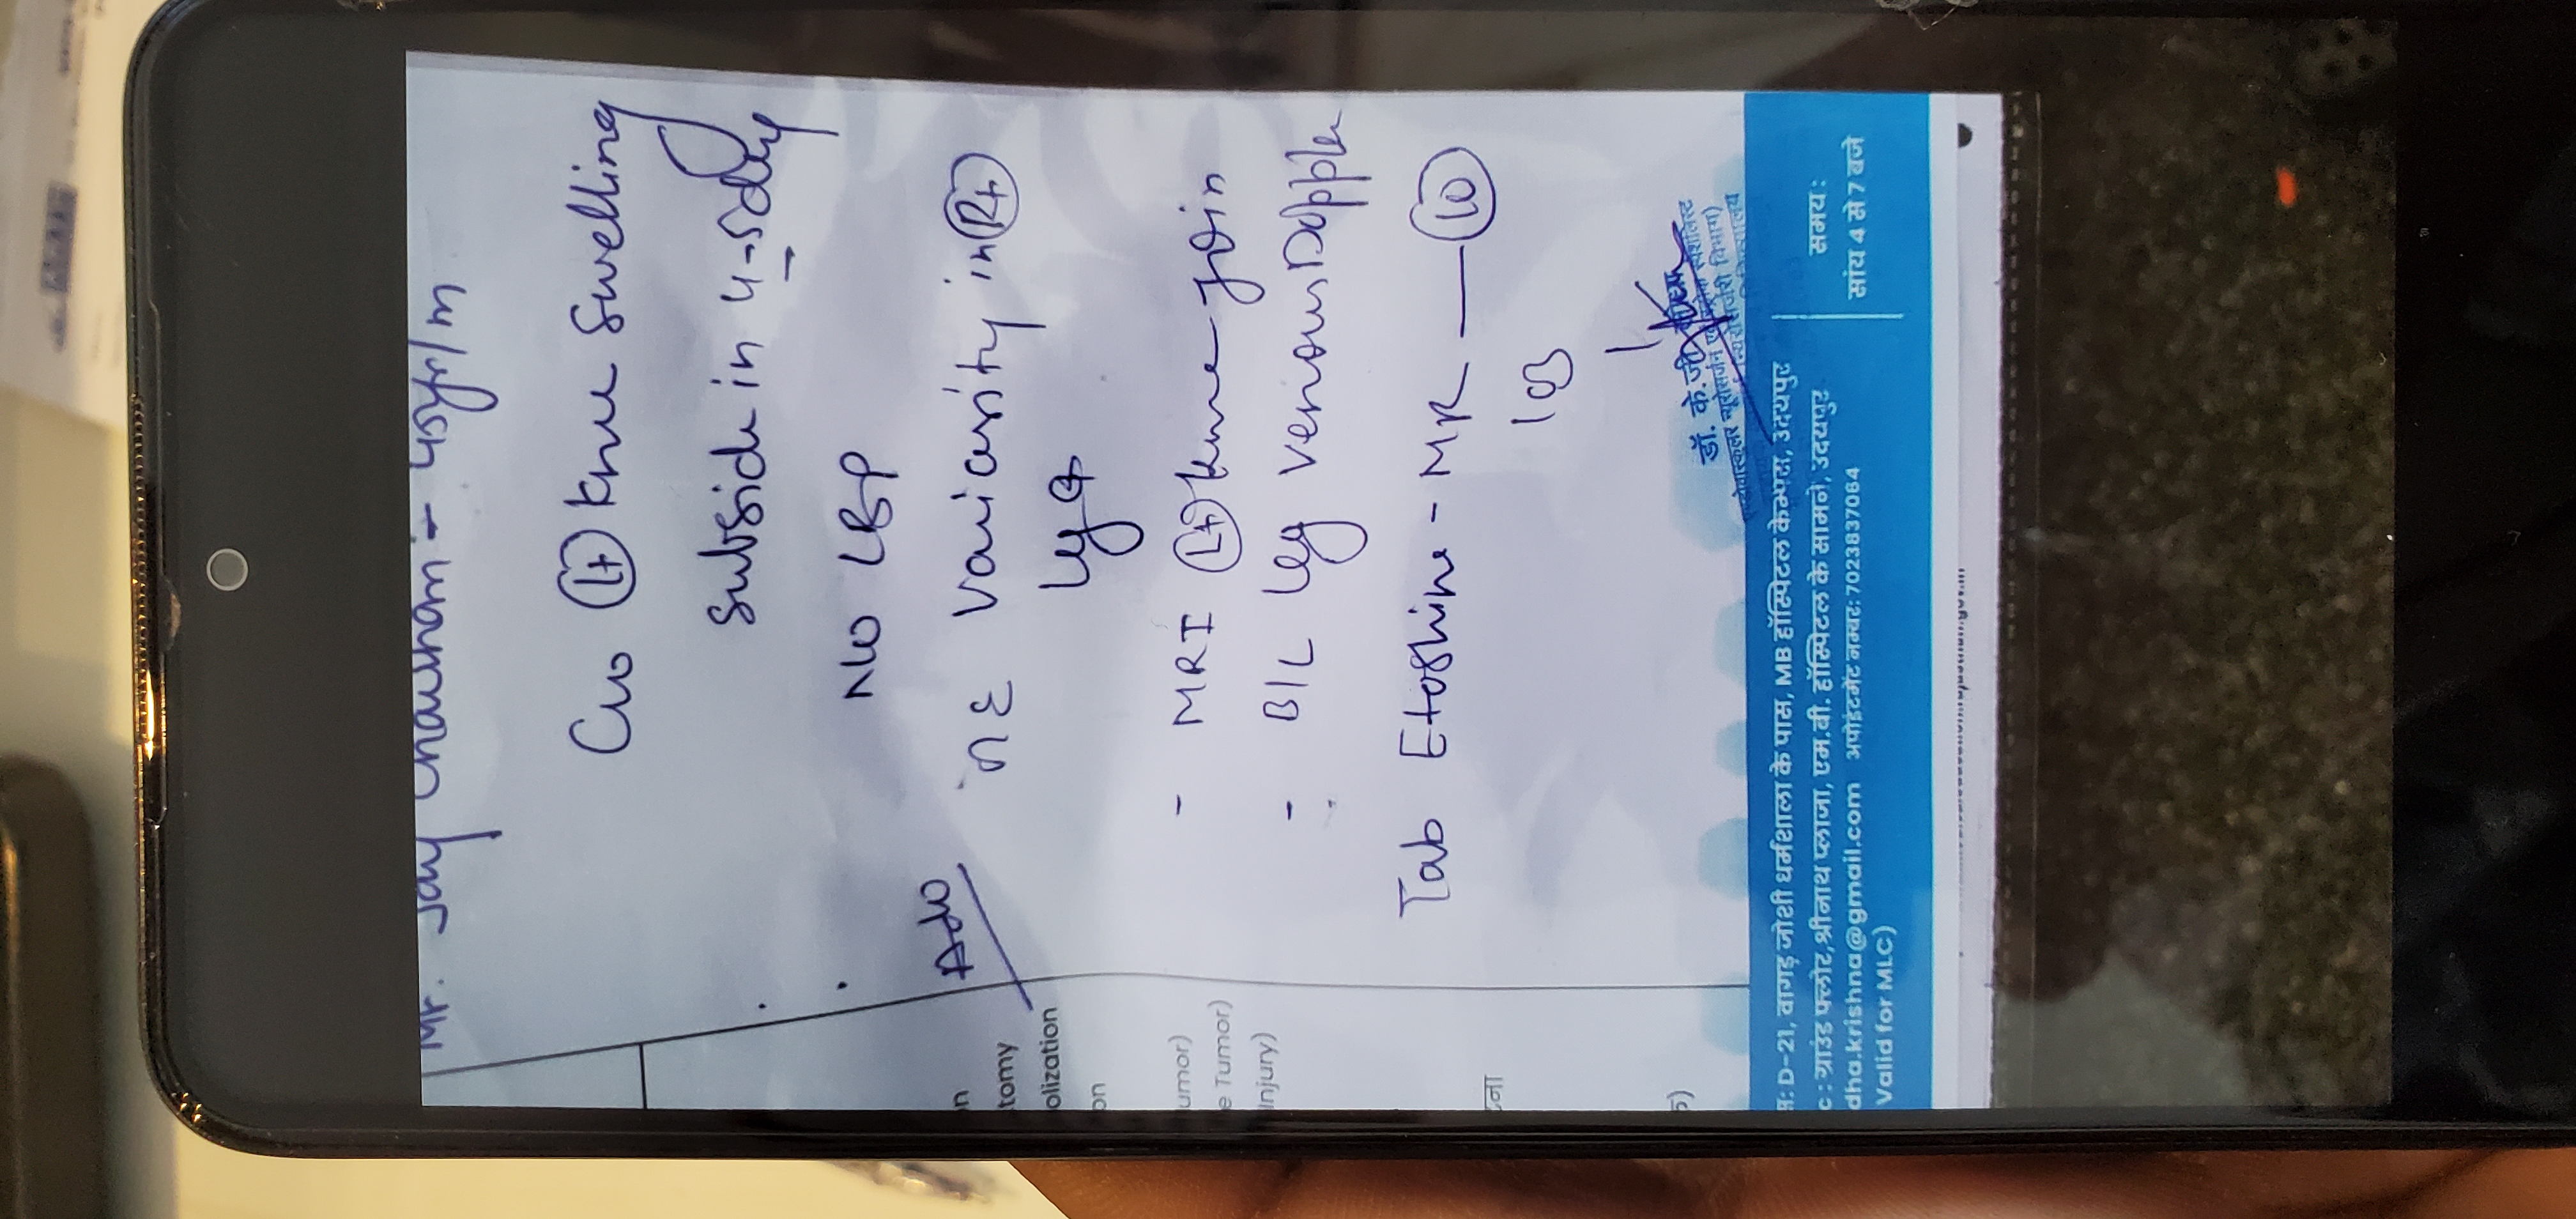 Mr. Jay Chauham - 45yr/m
C/o (Lt) knee swelling
subside in 4-5day
No LBP
Adv
O/E varicosity in (Rt)
Leg
- MRI (Lt) knee join
- B/L Leg venous Doppler
Tab Etoshine - MR — (10)
1 OD
डॉ. के.जी.
n
tomy
olization
on
umor)
e Tumor)
Injury)
D-21, वागड़ जोशी धर्मशाला के पास, MB हॉस्पिटल केम्पस, उदयपुर
c : ग्राउंड फ्लोर, श्रीनाथ प्लाजा, एम.बी. हॉस्पिटल के सामने, उदयपुर
dha.krishna@gmail.com अपोइंटमेंट नम्बर: 7023837084
Valid for MLC)
समय:
सांय 4 से 7 बजे